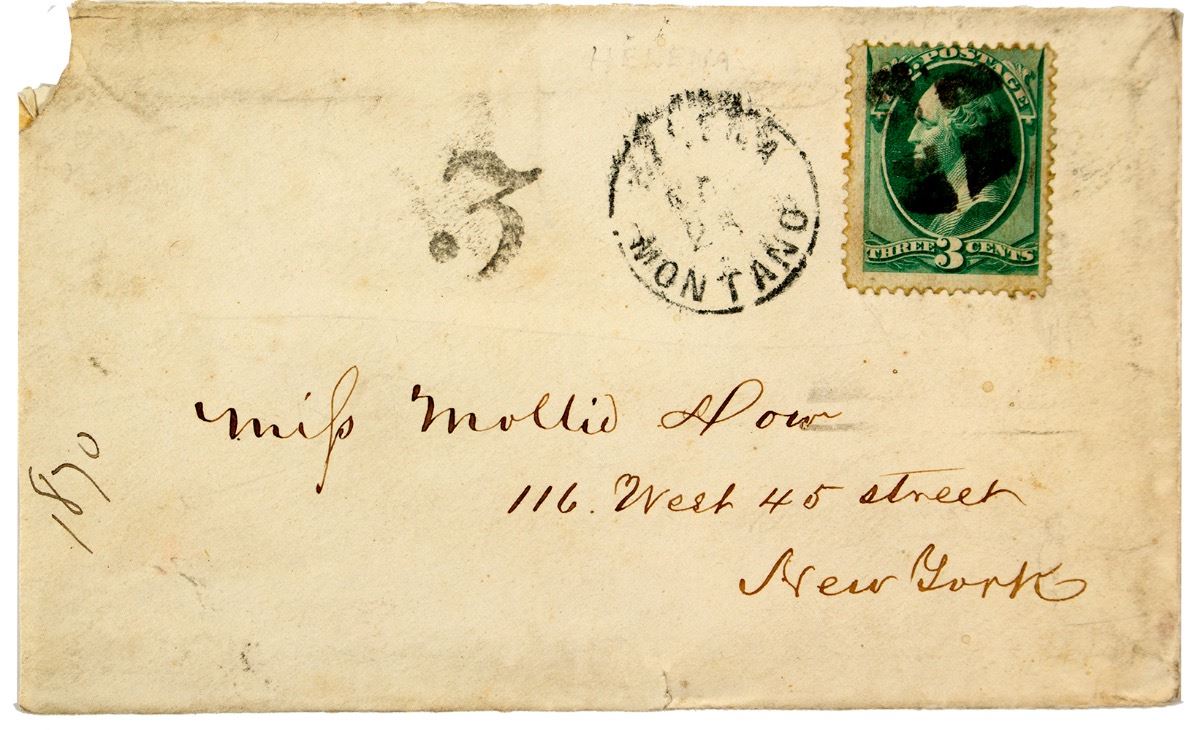 HELENA
U.S. POSTAGE
THREE 3 CENTS
3
HELENA
MONTANO
Miss Mollie How
116. West 45 street
New York
1870